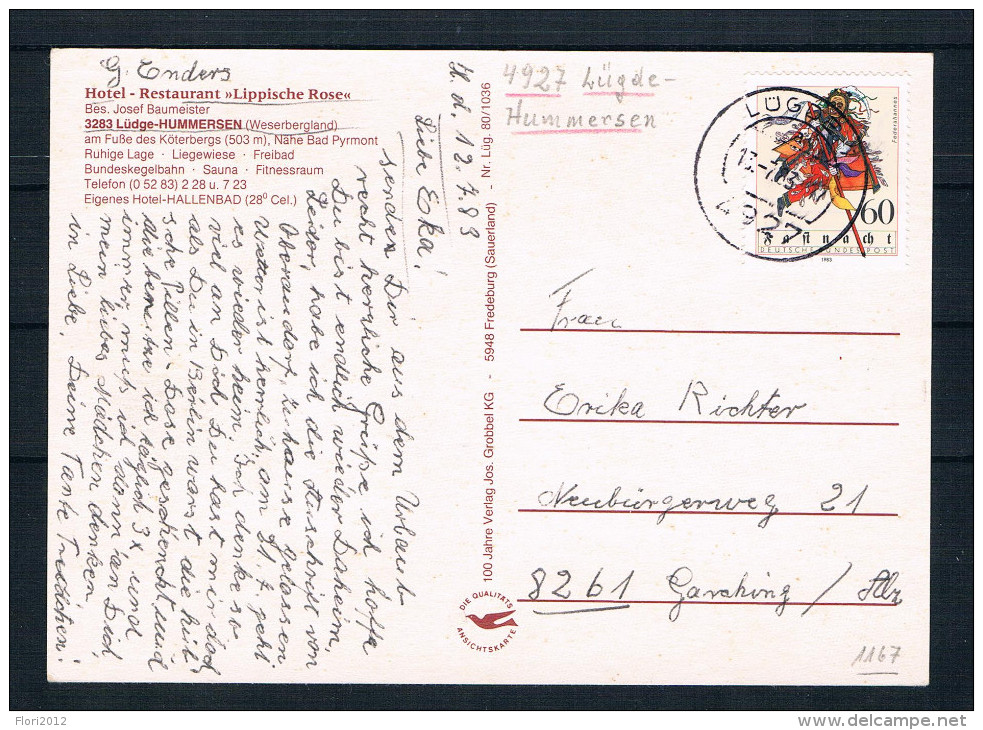 Gg. Enders
Hotel - Restaurant »Lippische Rose«
Bes. Josef Baumeister
3283 Lüdge-HUMMERSEN (Weserbergland)
am Fuße des Köterbergs (503 m), Nähe Bad Pyrmont
Ruhige Lage · Liegewiese · Freibad
Bundeskegelbahn · Sauna · Fitnessraum
Telefon (0 52 83) 2 28 u. 7 23
Eigenes Hotel-HALLENBAD (28⁰ Cel.)
H. d. 12.7.83
Liebe Eka!
senden Dir aus dem Urlaub
recht herzliche Grüße ich hoffe
Du bist endlich wieder Daheim,
Leider, habe ich die Anschrift von
Oberaudorf, zuhause gelassen
Wetter ist herrlich, am 21.7. geht
es wieder heim. Ich denke so
viel an Dich Du hast mir doch
als Du in Berlin warst die hüb
sche Pillen-Dose geschenkt und
die benutze ich täglich 3x und
immer muß ich dann an Dich
mein liebes Mädchen denken
in Liebe, Deine Tante Trudchen!
100 Jahre Verlag Jos. Grobbel KG - 5948 Fredeburg (Sauerland) - Nr. Lüg. 80/1036
DIE QUALITÄTS
ANSICHTSKARTE
4927 Lügde-
Hummersen
LÜG
4927
Federahannes
60
Fastnacht
DEUTSCHE BUNDESPOST
1983
Frau
Erika Richter
Neubürgerweg 21
8261 Garching / Alz
1167
Flori2012
www.delcampe.net